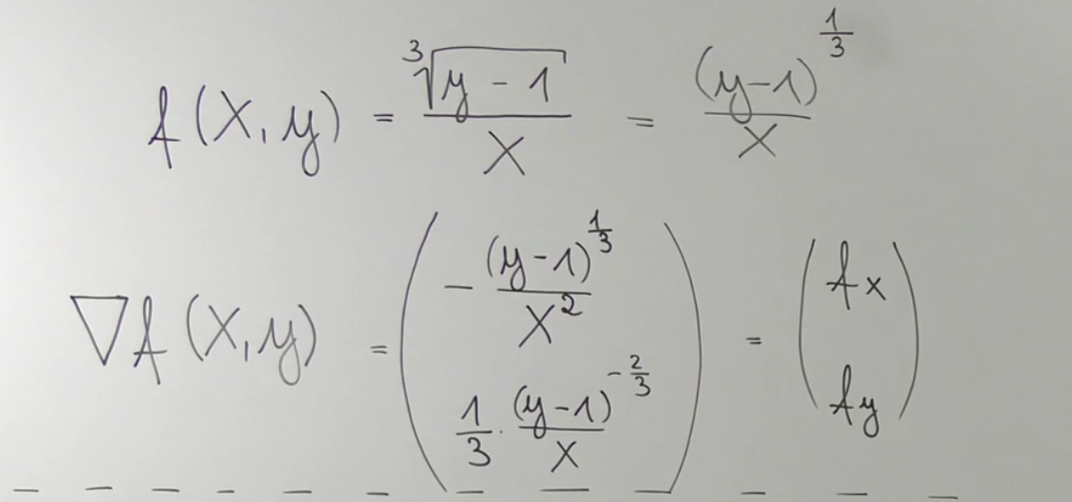 f(x,y) = ∛(y-1)/x = (y-1)^(1/3)/x
∇f(x,y) = ( -(y-1)^(1/3)/x² , 1/3 · (y-1)^(-2/3)/x ) = ( fx , fy )